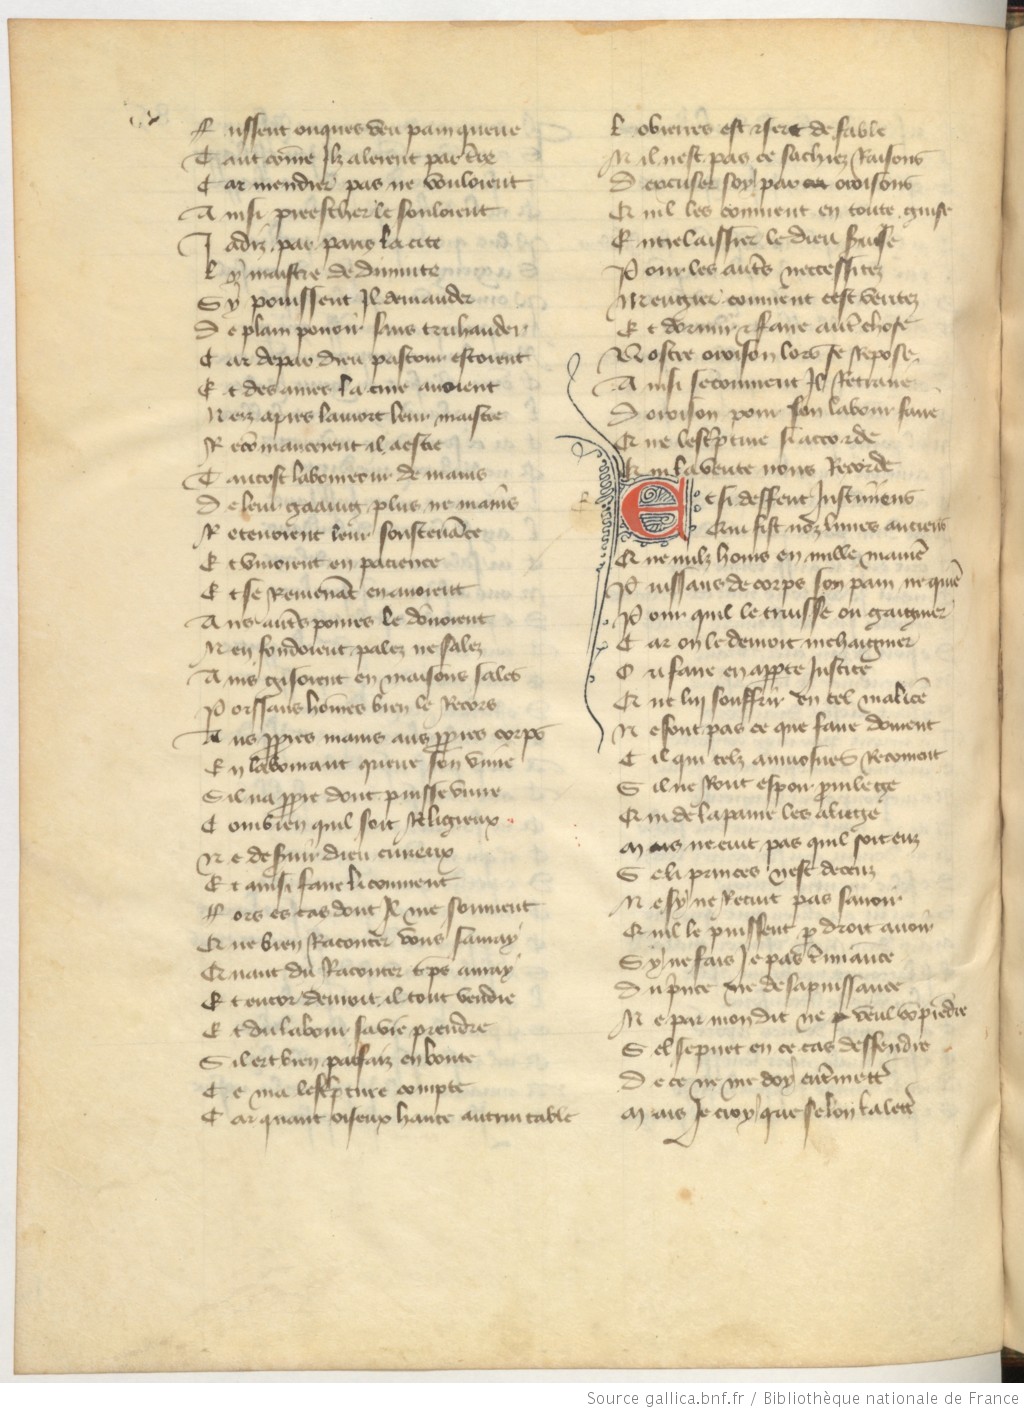 F ussent onques veu pain querre
T ant come Ilz alerent par tre
C ar mendier pas ne vouloient
A insi preescher le souloient
J adiz par paris la cite
L y maistre de diuinite
S y pouissent Il demander
D e plain pouoir sans truhander
C ar de par dieu pastour estoient
E t des ames la cure auoient
N eiz apres la mort leur maistre
R ecomancerent il a estre
T antost laboureur de mains
D e leur gaaing plus ne mains
R etenoient leur soustenace
E t viuoient en pacience
E t se Remenat en auoient
A us autres poures le donoient
N en fondoient palez ne salez
A ins gisoient en maisons sales
P oissans homes bien le Recors
A us ppres mains aus ppres corps
E n labourant querre son viure
S il na ppre dont puisse viure
C ombien quil soit Religieux
N e de seruir dieu curieux
E t ainsi faire li conuient
F ors es cas dont Il me souuient
Q ue bien Raconter vous sauray
Q uant du Raconter tps auray
E t encor deuroit il tout vendre
E t du labour sa vie prendre
S il ert bien parfaiz en bonte
C e ma lescpture compte
C ar quant oiseux hante autrui table
L obierres est et sert de fable
N il nest pas ce sachiez Raisons
D excuser soy par oroisons
Q uil les conuient en toute guise
E ntrelaissier le dieu seruise
P our les autres neccessitez
M engier conuient cest veritez
E t dormir et faire autre chose
N ostre oroison lors se Repose
A insi se conuient Il Retraire
D oroison pour son labour faire
Q ue lescpture si accorde
Q ui la verite nous Recorde
E t si deffent Justiniens
Q ui fist noz liures anciens
Q ue nulz homs en nulle maniere
P uissans de corps son pain ne quiere
P our quil le truisse ou gaigner
C ar on le deuroit mehaigner
O u faire en apperte Justice
Q ue lui souffrir en tel malice
N e font pas ce que faire doiuent
C il qui telz aumosnes Recoiuent
S il neRont espoir priuilege
Q ui de la paine les aliege
M ais ne cuit pas quil soit euz
S e li princes nest deceuz
N e sy ne Recuit pas sauoir
Q uil le puissent p droit auoir
S y ne fais Je pas terminance
D u prince ne de sa puissance
N e par mon dit ne veul comprendre
S el se puet en ce cas deffendre
D e ce ne me doy entremettre
M ais Je croy que selon la lettre
Source gallica.bnf.fr / Bibliothèque nationale de France